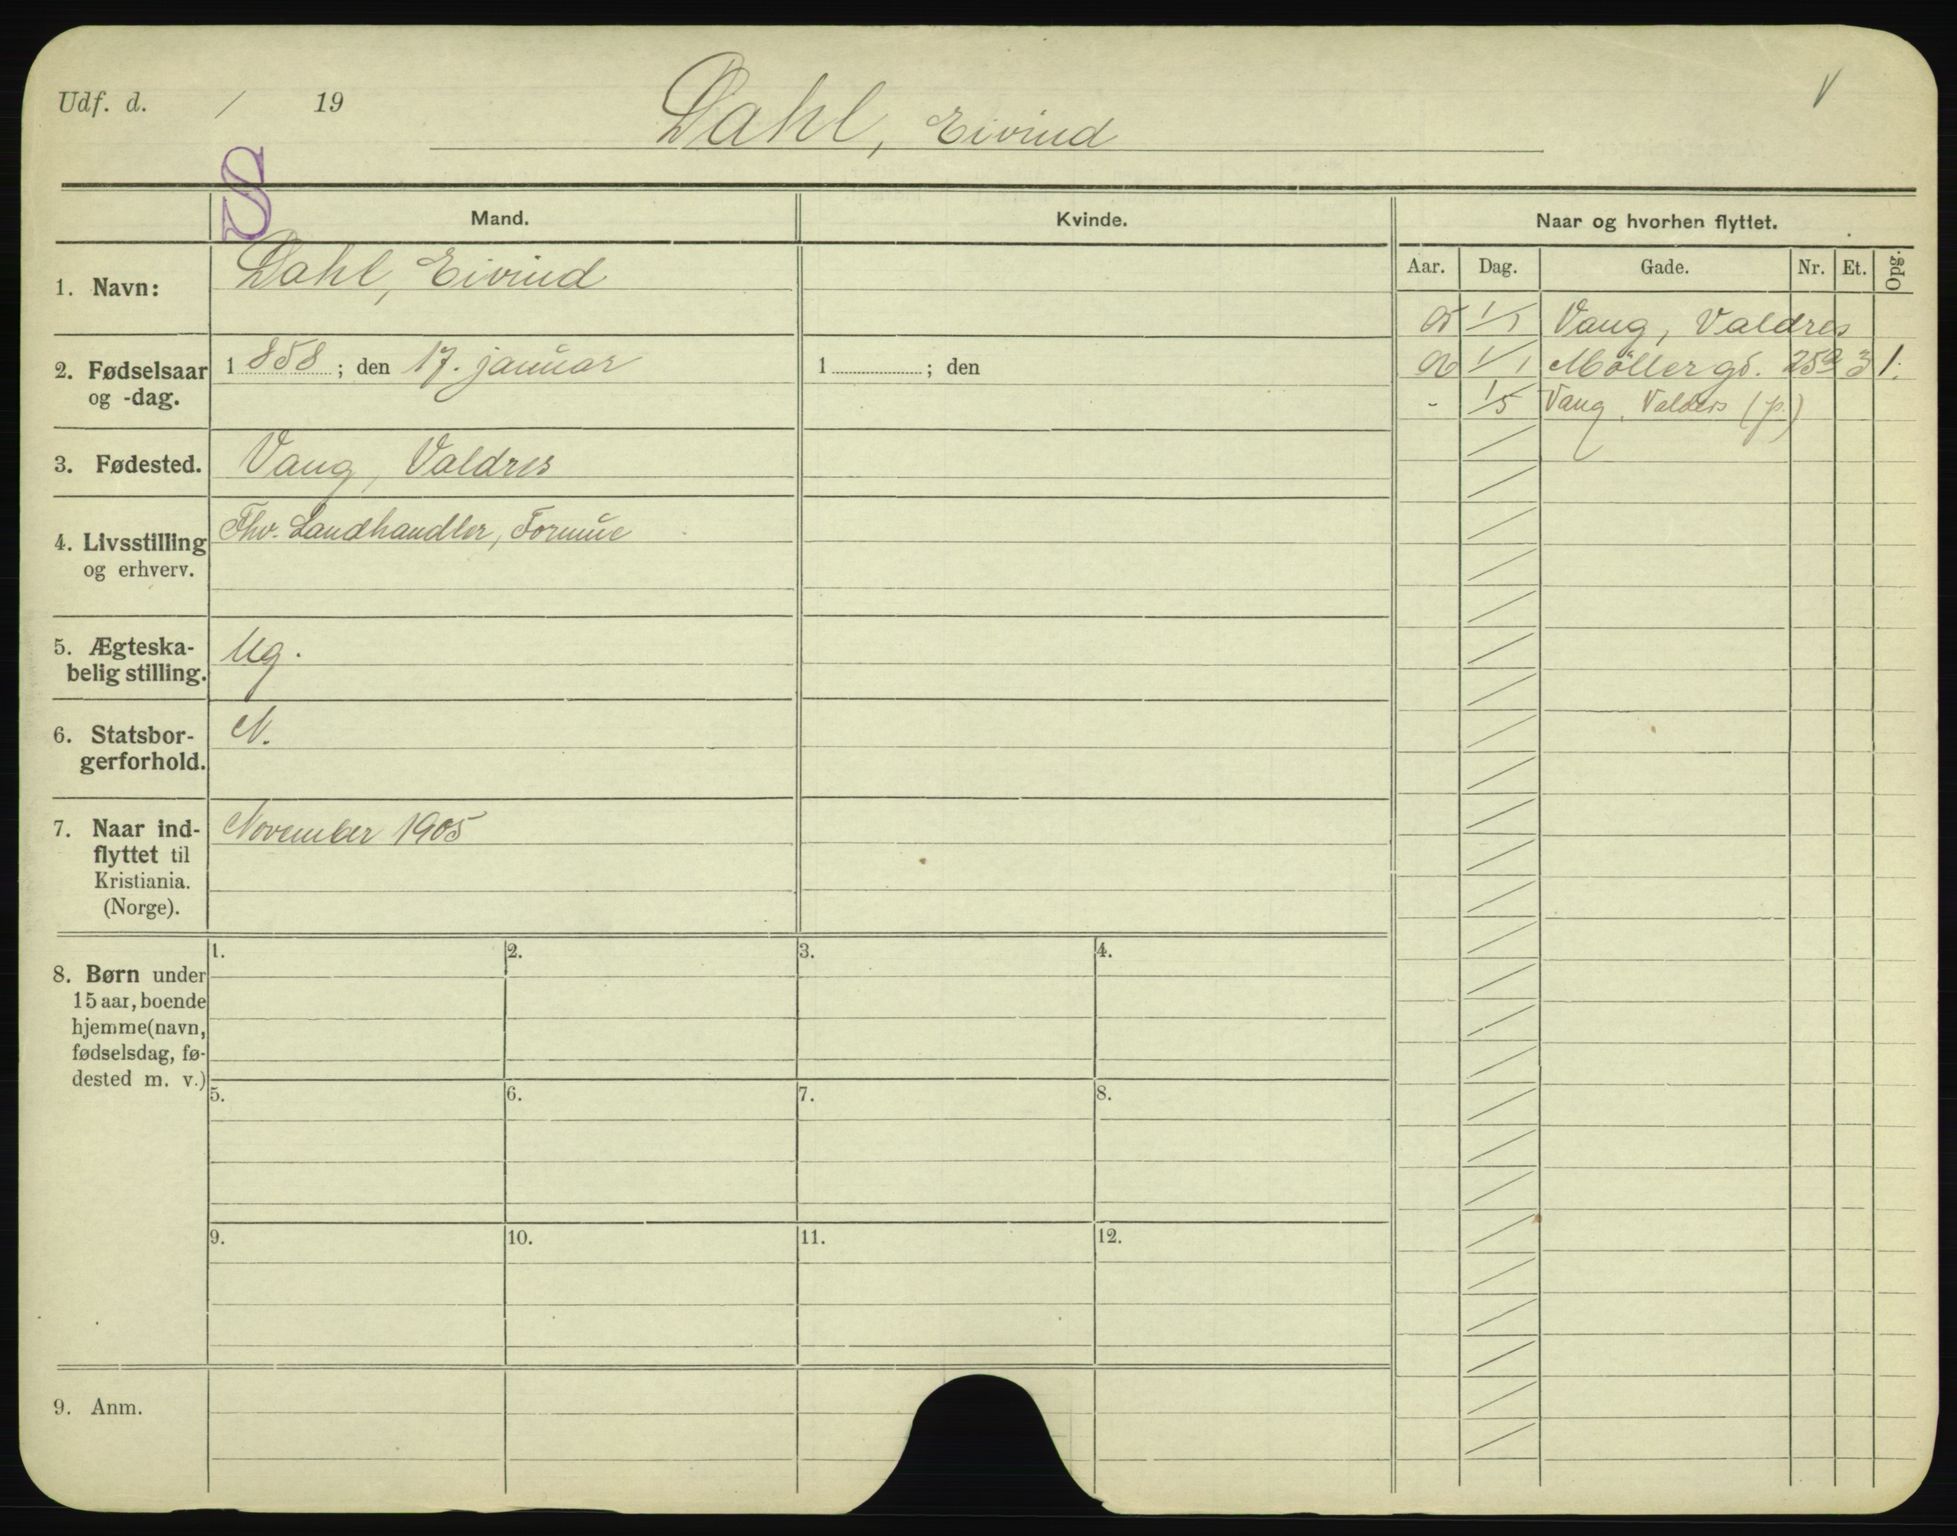 Udf. d. / 19
Dahl, Eivind
V
S
Mand.
Kvinde.
Naar og hvorhen flyttet.
Aar. Dag. Gade. Nr. Et. Opg.
1. Navn:
Dahl, Eivind
2. Fødselsaar
og -dag.
1858; den 17. januar
1 ; den
3. Fødested.
Vang, Valdres
4. Livsstilling
og erhverv.
Fhv. Landhandler, Formue
5. Ægteska-
belig stilling.
Ug.
6. Statsbor-
gerforhold.
N.
7. Naar ind-
flyttet til
Kristiania.
(Norge).
November 1905
8. Børn under
15 aar, boende
hjemme (navn,
fødselsdag, fø-
dested m. v.)
1. 2. 3. 4.
5. 6. 7. 8.
9. 10. 11. 12.
9. Anm.
05 1/1 Vang, Valdres
06 1/1 Möllergd. 25 3 1.
- 1/5 Vang, Valders (p.)